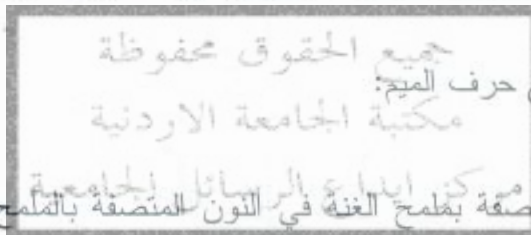 جميع الحقوق محفوظة
حرف الميم:
مكتبة الجامعة الاردنية
مركز ايداع الرسائل الجامعية
بملمح الغنة في النون المتصفة بالملمح